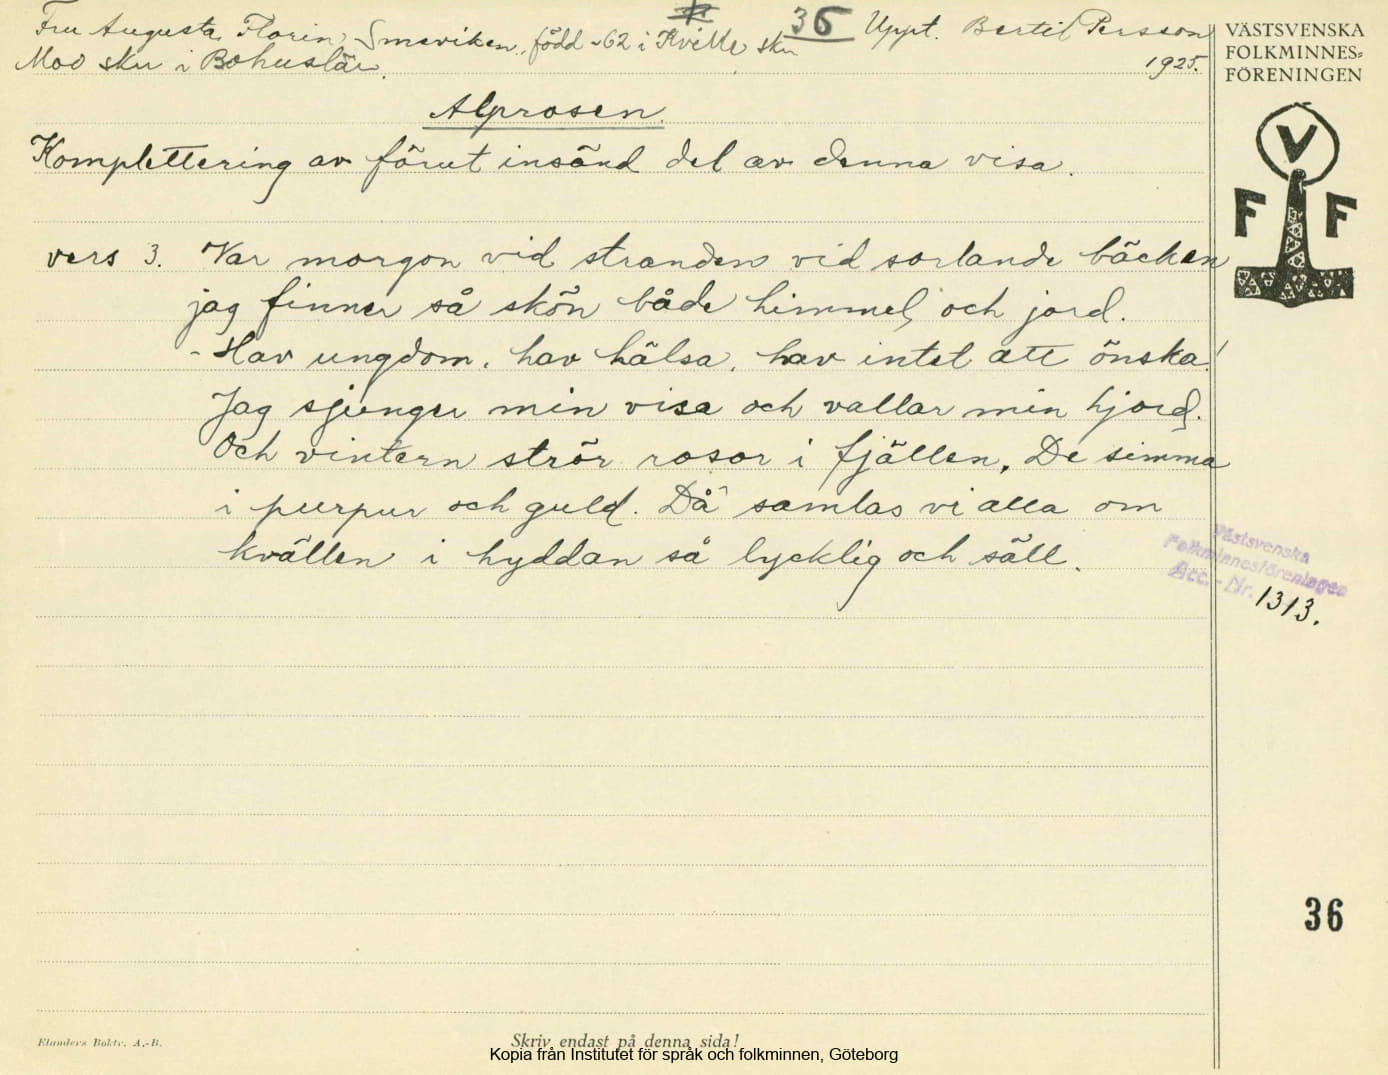 Fru Augusta Florin, Smeviken, född -62 i Kville skn
36
Uppt. Bertil Persson
Moo skn i Bohuslän.
1925.
VÄSTSVENSKA
FOLKMINNES-
FÖRENINGEN
V
F F
Alprosen.
Komplettering av förut insänd del av denna visa.
vers 3. Var morgon vid stranden vid sorlande bäcken
jag finner så skön både himmel och jord.
- Hav ungdom, hav hälsa, hav intet att önska!
Jag sjunger min visa och vallar min hjord.
Och vintern strör rosor i fjällen. De simma
i purpur och guld. Då samlas vi alla om
kvällen i hyddan så lycklig och säll.
Västsvenska
Folkminnesföreningen
Acc.-Nr. 1313.
36
Elanders Boktr. A.-B.
Skriv endast på denna sida!
Kopia från Institutet för språk och folkminnen, Göteborg